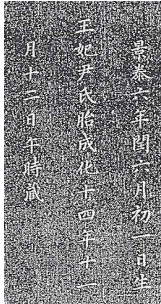 景泰六年閏六月初一日生
王妃尹氏胎成化十四年十一
月十二日午時藏